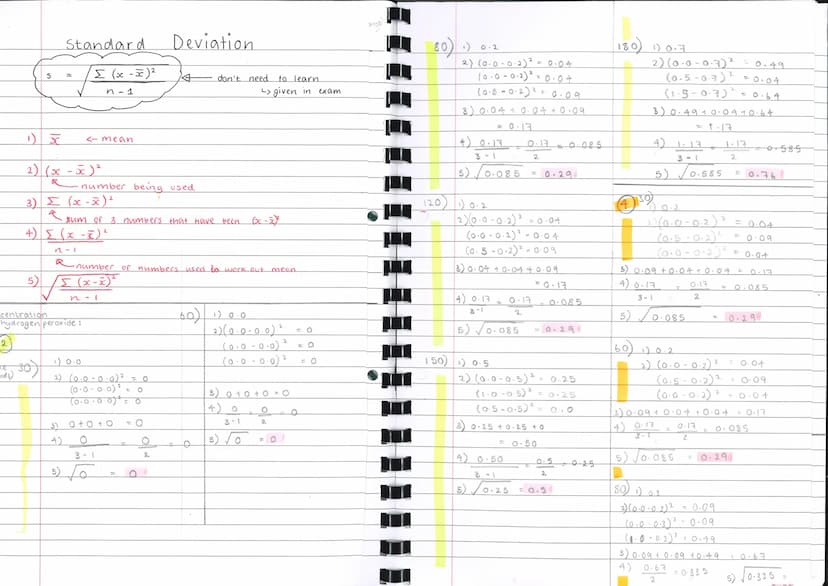 Standard Deviation
s = √ Σ (x - x̄)² / n - 1
← don't need to learn
↳ given in exam
1) x̄ ← mean
2) (x - x̄)²
number being used
3) Σ (x - x̄)²
sum of 3 numbers that have been (x - x̄)²
4) Σ (x - x̄)² / n - 1
number of numbers used to work out mean
5) √ Σ (x - x̄)² / n - 1
hydrogen peroxide:
2
30)
1) 0.0
2) (0.0 - 0.0)² = 0
(0.0 - 0.0)² = 0
(0.0 - 0.0)² = 0
3) 0 + 0 + 0 = 0
4) 0 / 3 - 1 = 0 / 2 = 0
5) √0 = 0
60)
1) 0.0
2) (0.0 - 0.0)² = 0
(0.0 - 0.0)² = 0
(0.0 - 0.0)² = 0
3) 0 + 0 + 0 = 0
4) 0 / 3 - 1 = 0 / 2 = 0
5) √0 = 0
1) 0.2
2) (0.0 - 0.2)² = 0.04
(0.0 - 0.2)² = 0.04
(0.5 - 0.2)² = 0.09
3) 0.04 + 0.04 + 0.09
= 0.17
4) 0.17 / 3 - 1 = 0.17 / 2 = 0.085
5) √0.085 = 0.29
120)
1) 0.2
2) (0.0 - 0.2)² = 0.04
(0.0 - 0.2)² = 0.04
(0.5 - 0.2)² = 0.09
3) 0.04 + 0.04 + 0.09
= 0.17
4) 0.17 / 3 - 1 = 0.17 / 2 = 0.085
5) √0.085 = 0.29
150)
1) 0.5
2) (0.0 - 0.5)² = 0.25
(1.0 - 0.5)² = 0.25
(0.5 - 0.5)² = 0.0
3) 0.25 + 0.25 + 0
= 0.50
4) 0.50 / 3 - 1 = 0.5 / 2 = 0.25
5) √0.25 = 0.5
180)
1) 0.7
2) (0.0 - 0.7)² = 0.49
(0.5 - 0.7)² = 0.04
(1.5 - 0.7)² = 0.64
3) 0.49 + 0.04 + 0.64
= 1.17
4) 1.17 / 3 - 1 = 1.17 / 2 = 0.585
5) √0.585 = 0.76
4
30)
1) 0.2
(0.0 - 0.2)² = 0.04
(0.5 - 0.2)² = 0.09
(0.0 - 0.2)² = 0.04
3) 0.09 + 0.04 + 0.04 = 0.17
4) 0.17 / 3 - 1 = 0.17 / 2 = 0.085
5) √0.085 = 0.29
60)
1) 0.2
2) (0.0 - 0.2)² = 0.04
(0.5 - 0.2)² = 0.09
(0.0 - 0.2)² = 0.04
3) 0.09 + 0.04 + 0.04 = 0.17
4) 0.17 / 3 - 1 = 0.17 / 2 = 0.085
5) √0.085 = 0.29
= 0.09
= 0.09
= 0.49
3) 0.09 + 0.09 + 0.49 = 0.67
4) 0.67 = 0.335